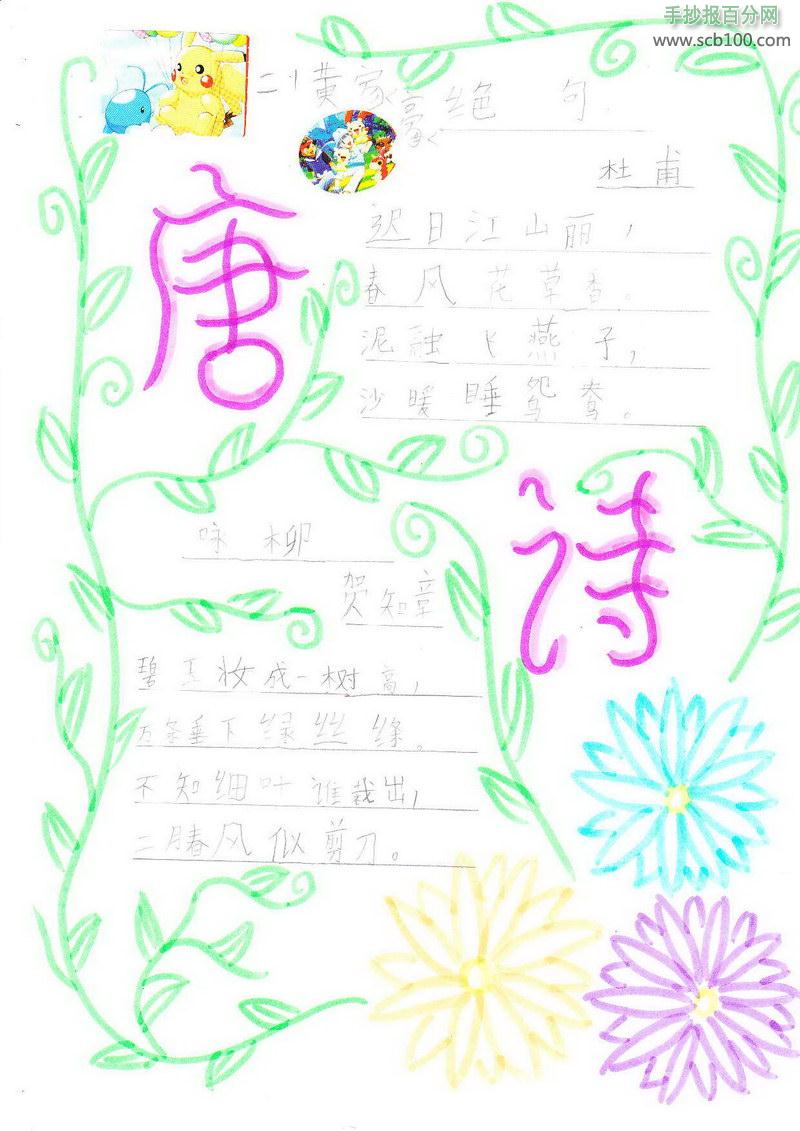 手抄报百分网
www.scb100.com
二1黄家豪
绝句
杜甫
唐
迟日江山丽，
春风花草香。
泥融飞燕子，
沙暖睡鸳鸯。
诗
咏柳
贺知章
碧玉妆成一树高，
万条垂下绿丝绦。
不知细叶谁裁出，
二月春风似剪刀。